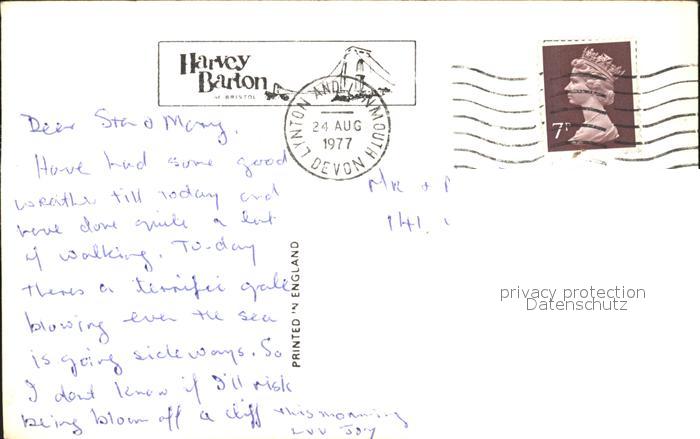 Harvey
Barton
OF BRISTOL
LYNTON AND LYNMOUTH
24 AUG
1977
DEVON
7P
Dear Stan & Mary,
Have had some good
weather till today and
have done quite a lot
of walking. To-day
theres a terrific gale
blowing even the sea
is going sideways. So
I dont know if I'll risk
being blown off a cliff this morning
Luv Joy
PRINTED IN ENGLAND
MR +
141,
privacy protection
Datenschutz